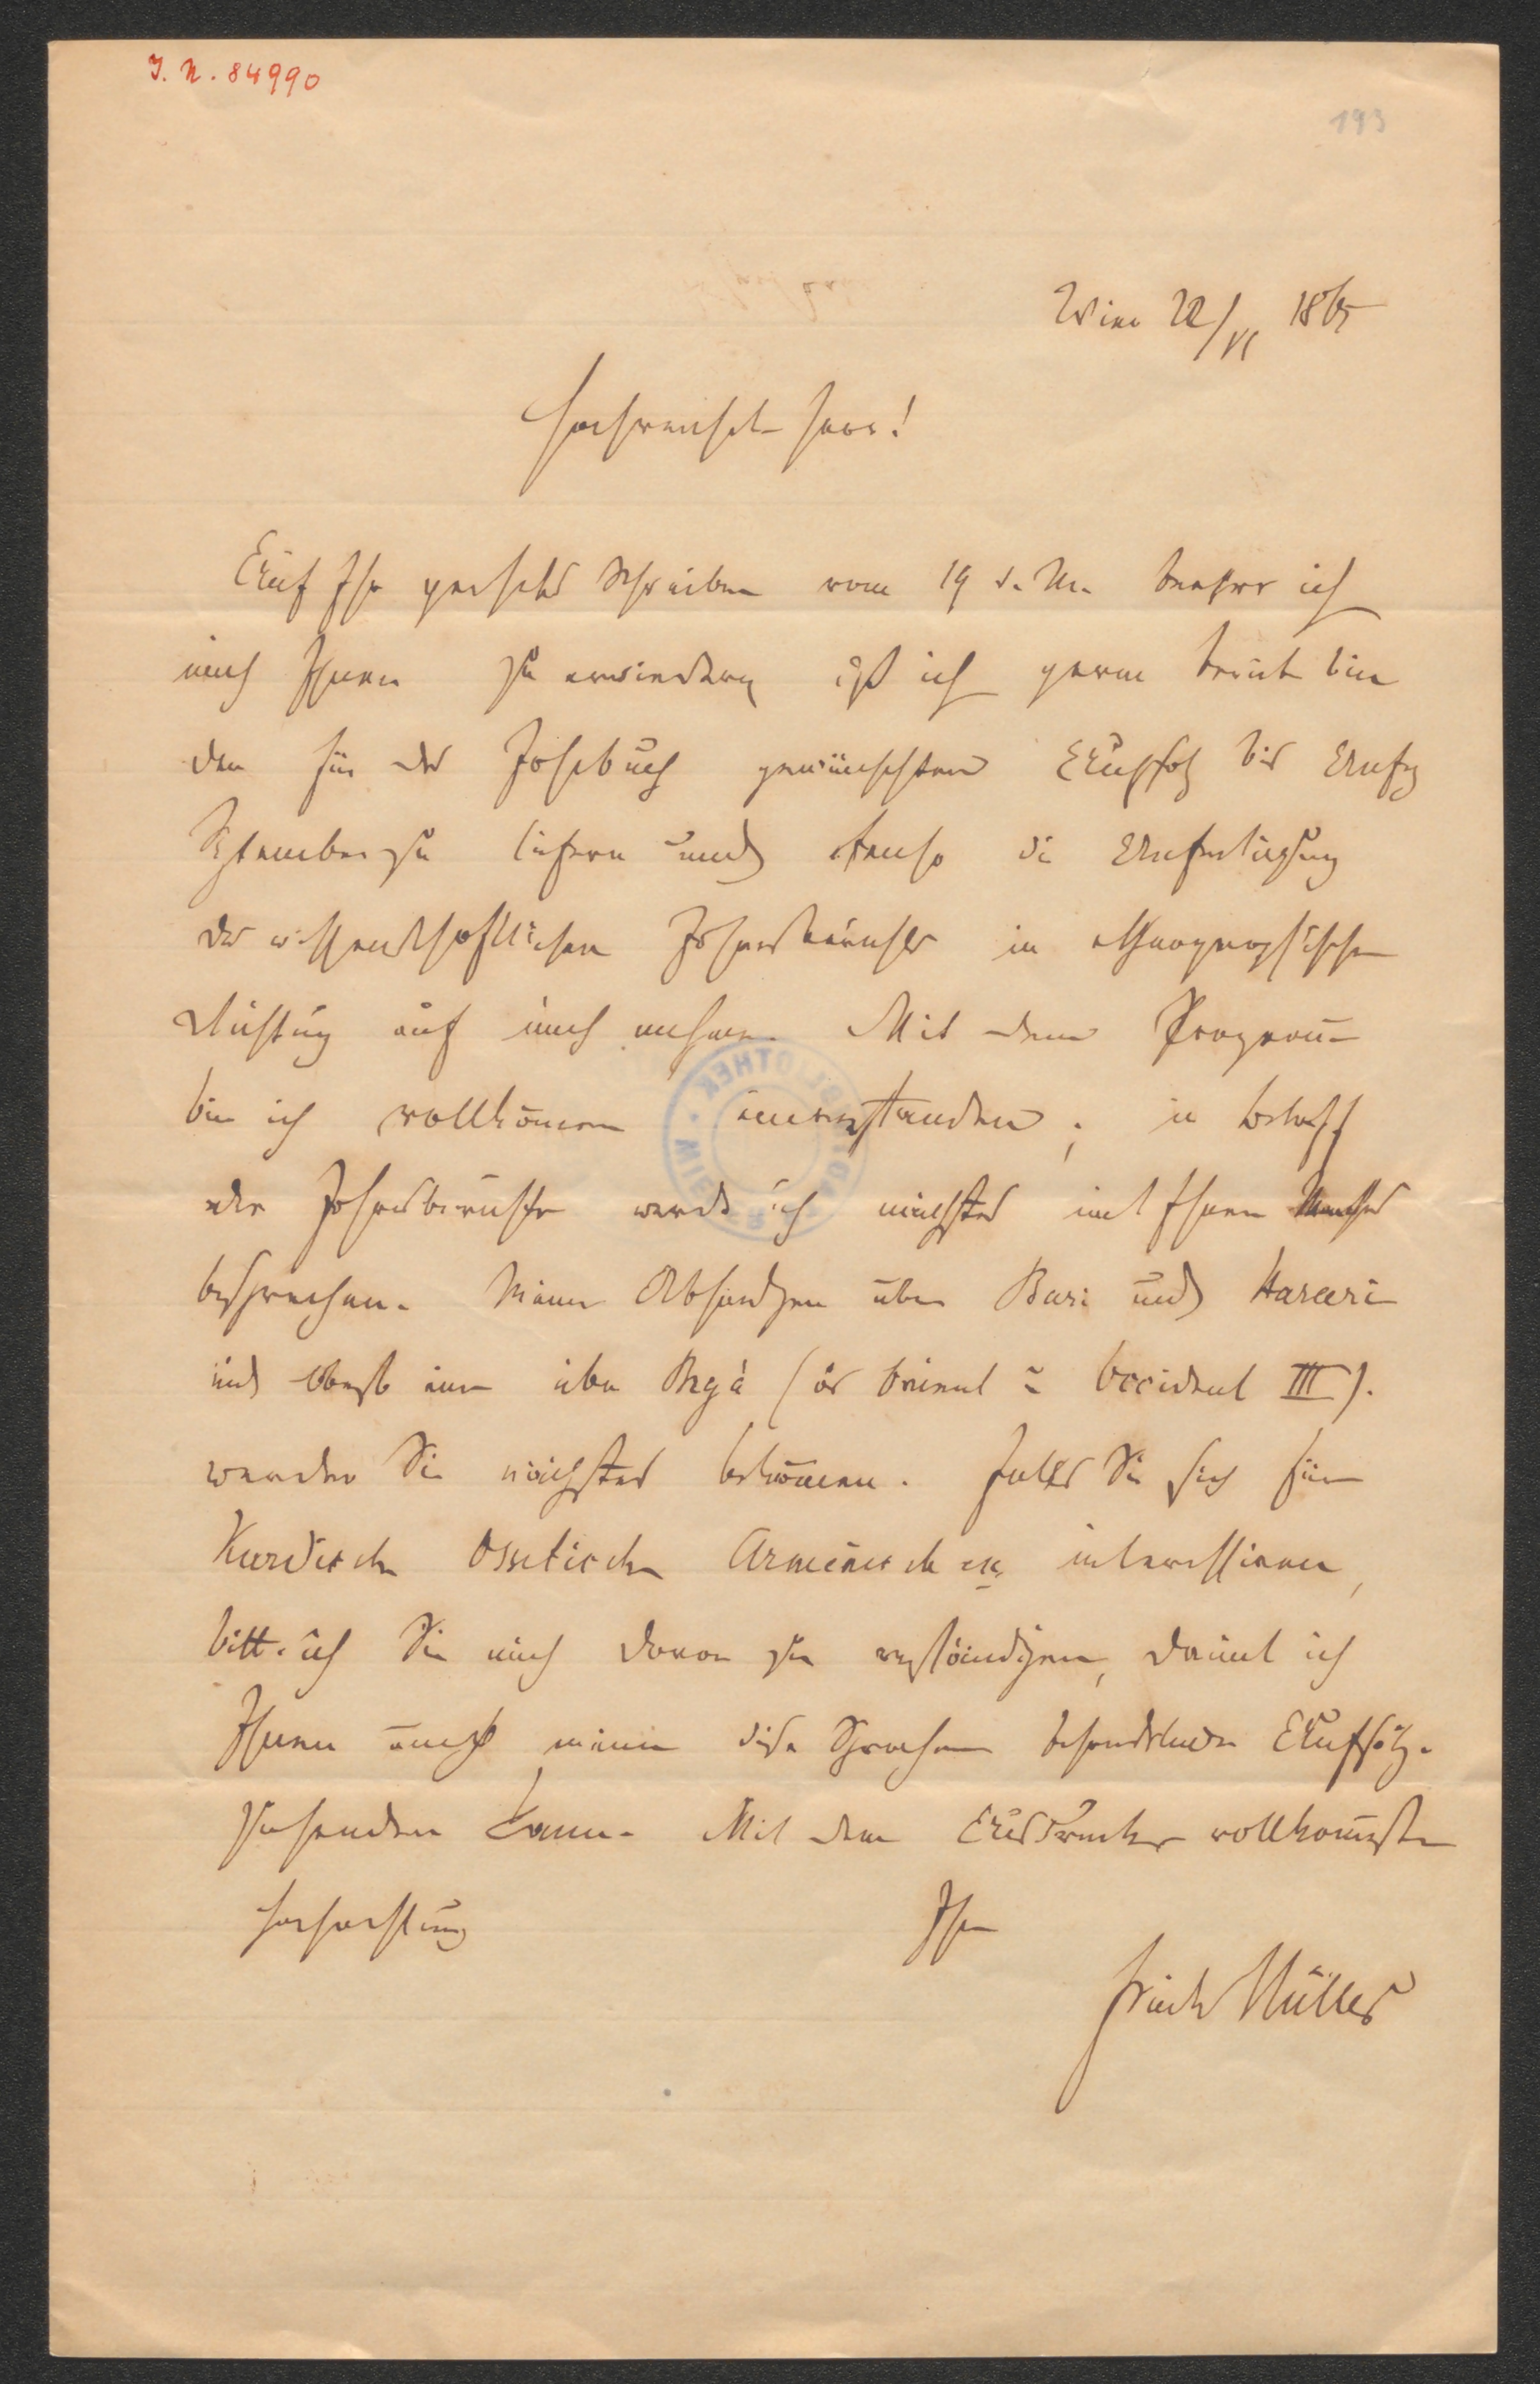 J. N. 84990
193
Wien 22/VI 1865
Hochverehrter Herr!
Auf Ihr geehrtes Schreiben vom 19 d. M. beehre ich
mich Ihnen zu erwiedern, daß ich gerne bereit bin
den für das Jahrbuch gewünschten Aufsatz bis Anfg
September zu liefern und ebenso die Anfertigung
des wissenschaftlichen Jahresberichtes in ethnographischer
Richtung auf mich nehme. Mit dem Programme
bin ich vollkommen einverstanden; in betreff
der Jahresberichte werde ich nächstes mit Ihnen
besprechen. Meine Abhandlgen über Bari und Harari
und über Begà (Orient u Occident III).
werden Sie nächstes bekommen. Falls Sie sich für
Kurdische Ossetische Armenische etc interessiren,
bitte ich Sie mich davon zu verständigen, damit ich
Ihnen auch meine diese Sprachen behandelnden Aufsätze
zusenden kann. Mit dem Ausdrucke vollkommenster
Hochachtung Ihr
Friedr Müller
BIBLIOTHEK · WIEN